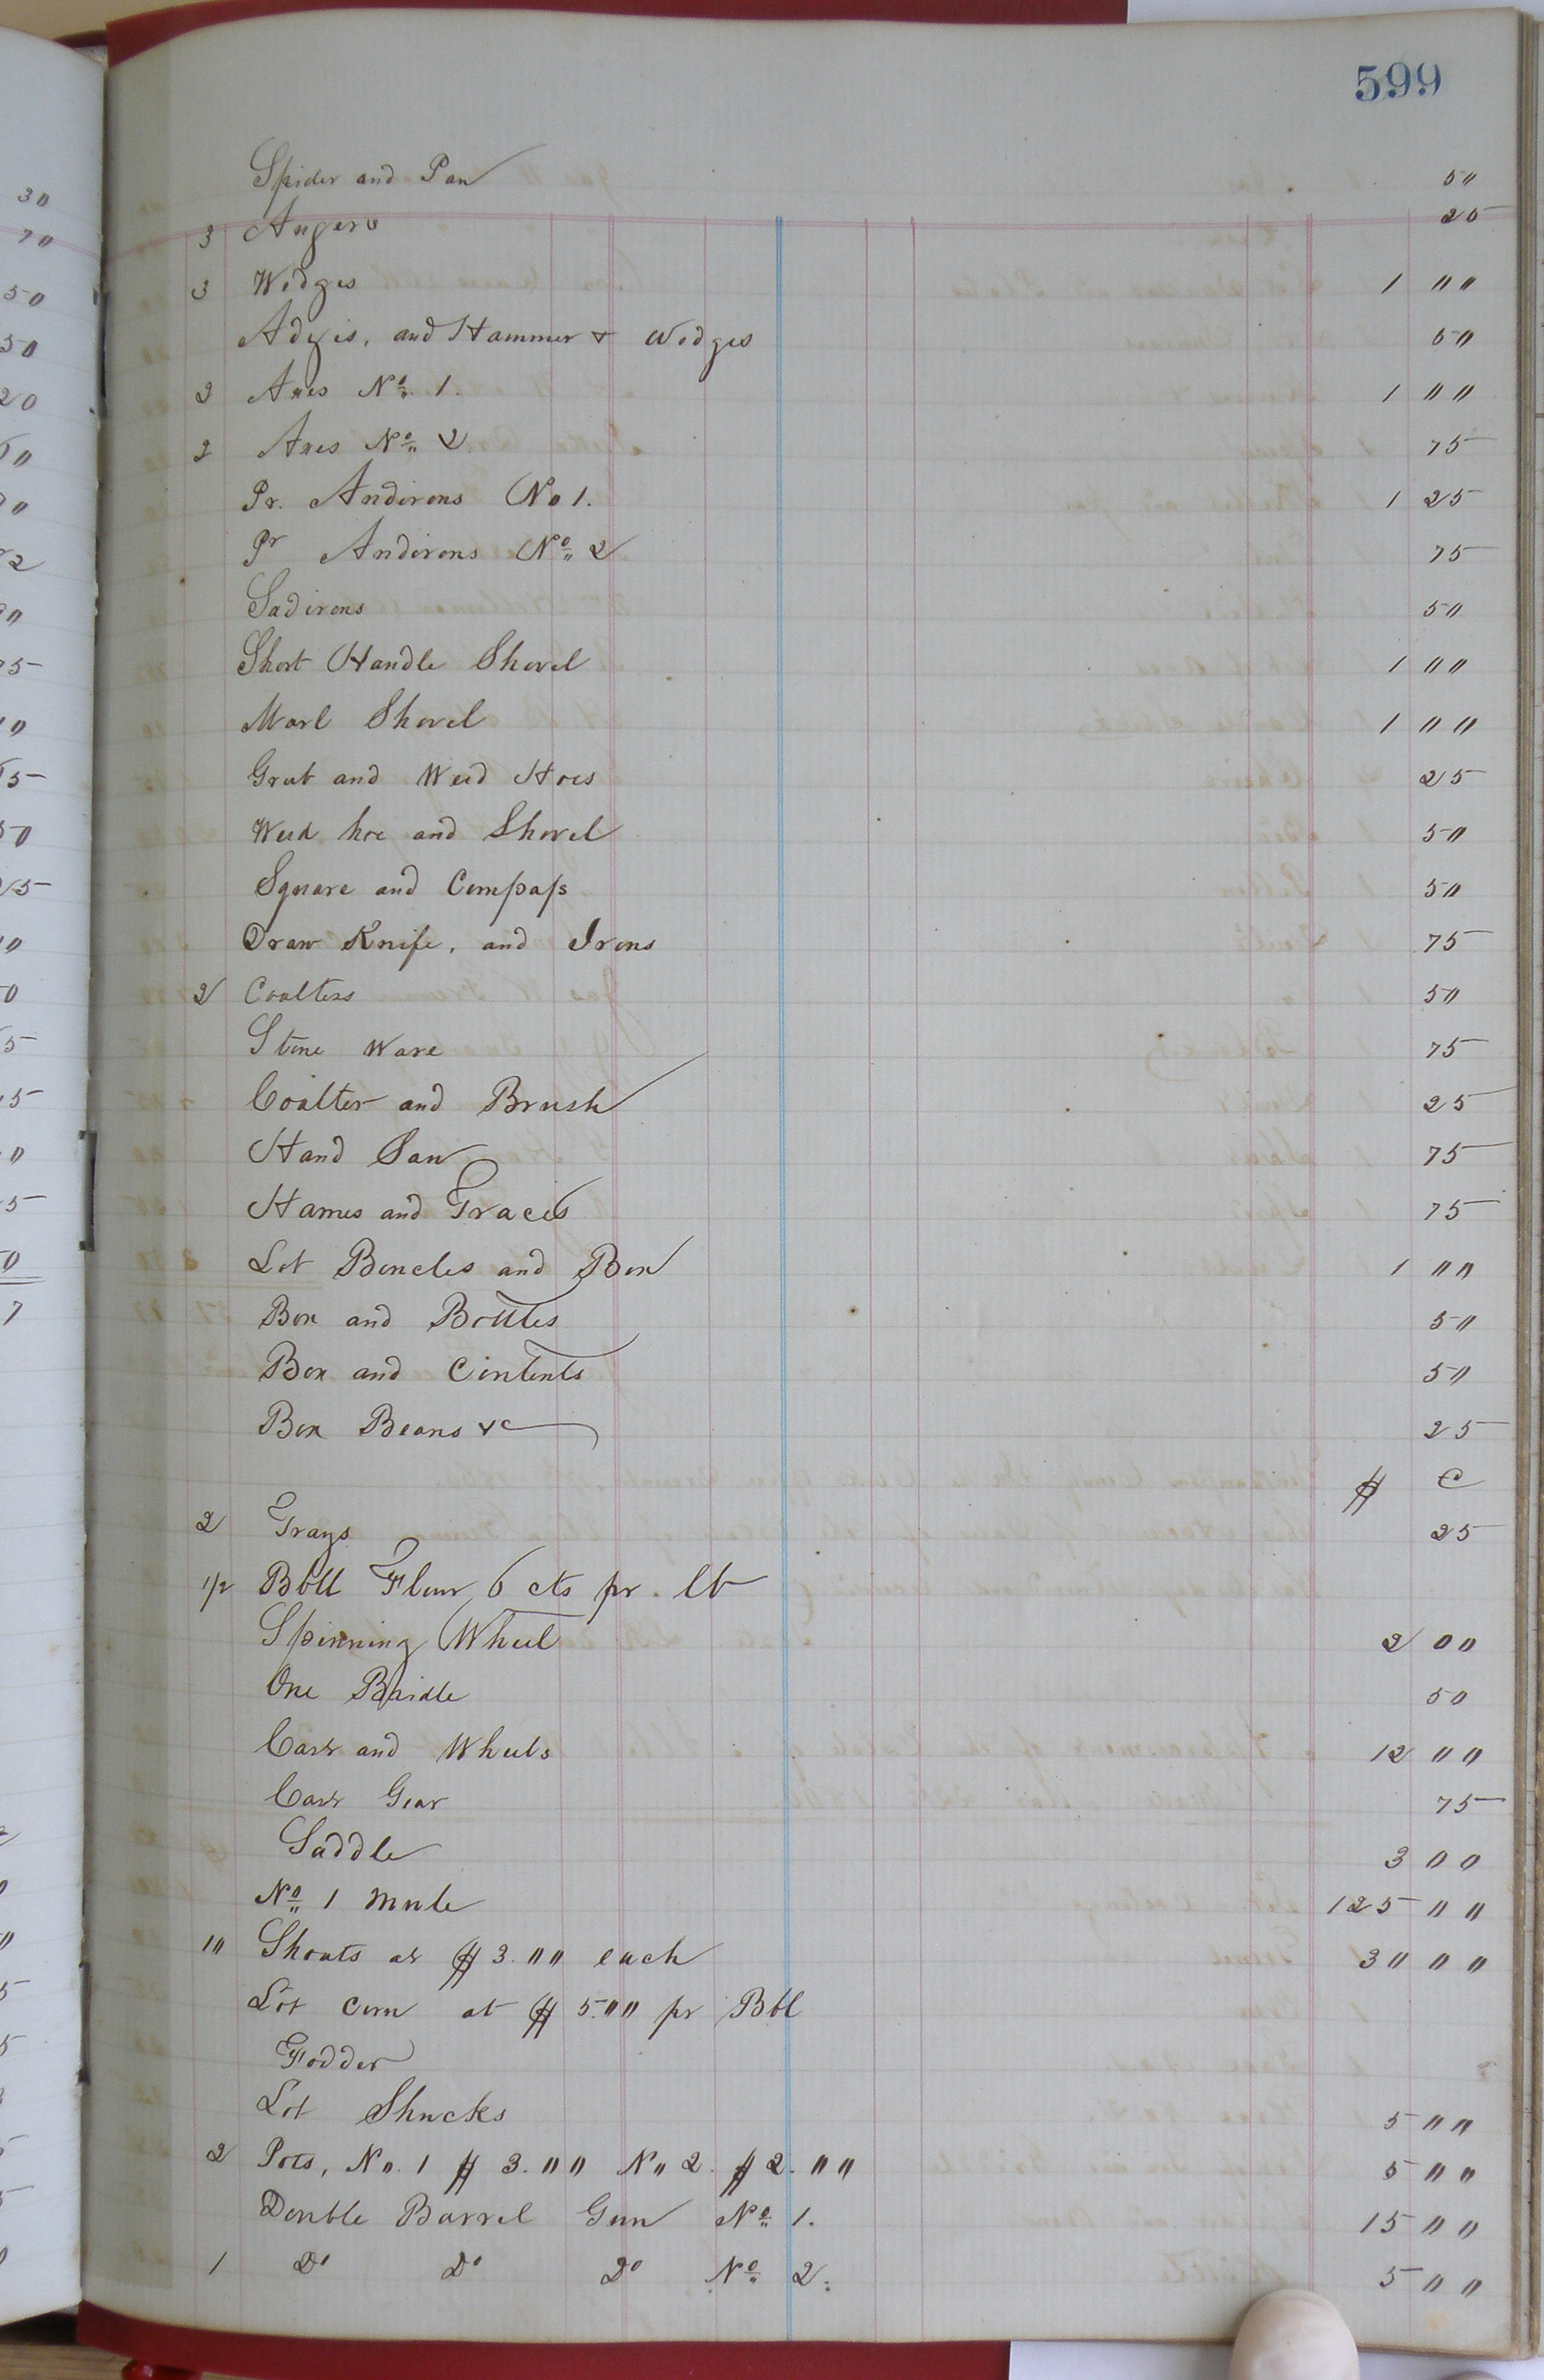 599
Spider and Pan 50
3 Augers 25
3 Wedges 1 00
Adzis, and Hammer + Wedges 50
2 Axes No. 1. 1 00
2 Axes No. 2 75
Pr. Andirons No 1. 1 25
Pr Andirons No. 2 75
Sadirons 50
Short Handle Shovel 1 00
Marl Shovel 1 00
Grub and Weed Hoes 25
Weed hoe and Shovel 50
Square and Compass 50
Draw Knife, and Irons 75
2 Coulters 50
Stone Ware 75
Coulter and Brush 25
Hand Saw 75
Hames and Traces 75
Lot and Box 1 00
Box and Bottles 50
Box and Contents 50
Box Beans &c 25
$ C
2 Trays 25
1/2 Bbll Flour 6 cts pr. lb
Spinning Wheel 2 00
One Bridle 50
Cart and Wheels 12 00
Cart Gear 75
Saddle 3 00
No. 1 Mule 125 00
10 Shoats at $3.00 each 30 00
Lot Corn at $5.00 pr Bbl
Fodder
Lot Shucks 5 00
2 Pots, No. 1 $3.00 No 2. $2.00 5 00
Double Barrel Gun No. 1. 15 00
1 Do Do Do No. 2. 5 00
30
70
50
50
20